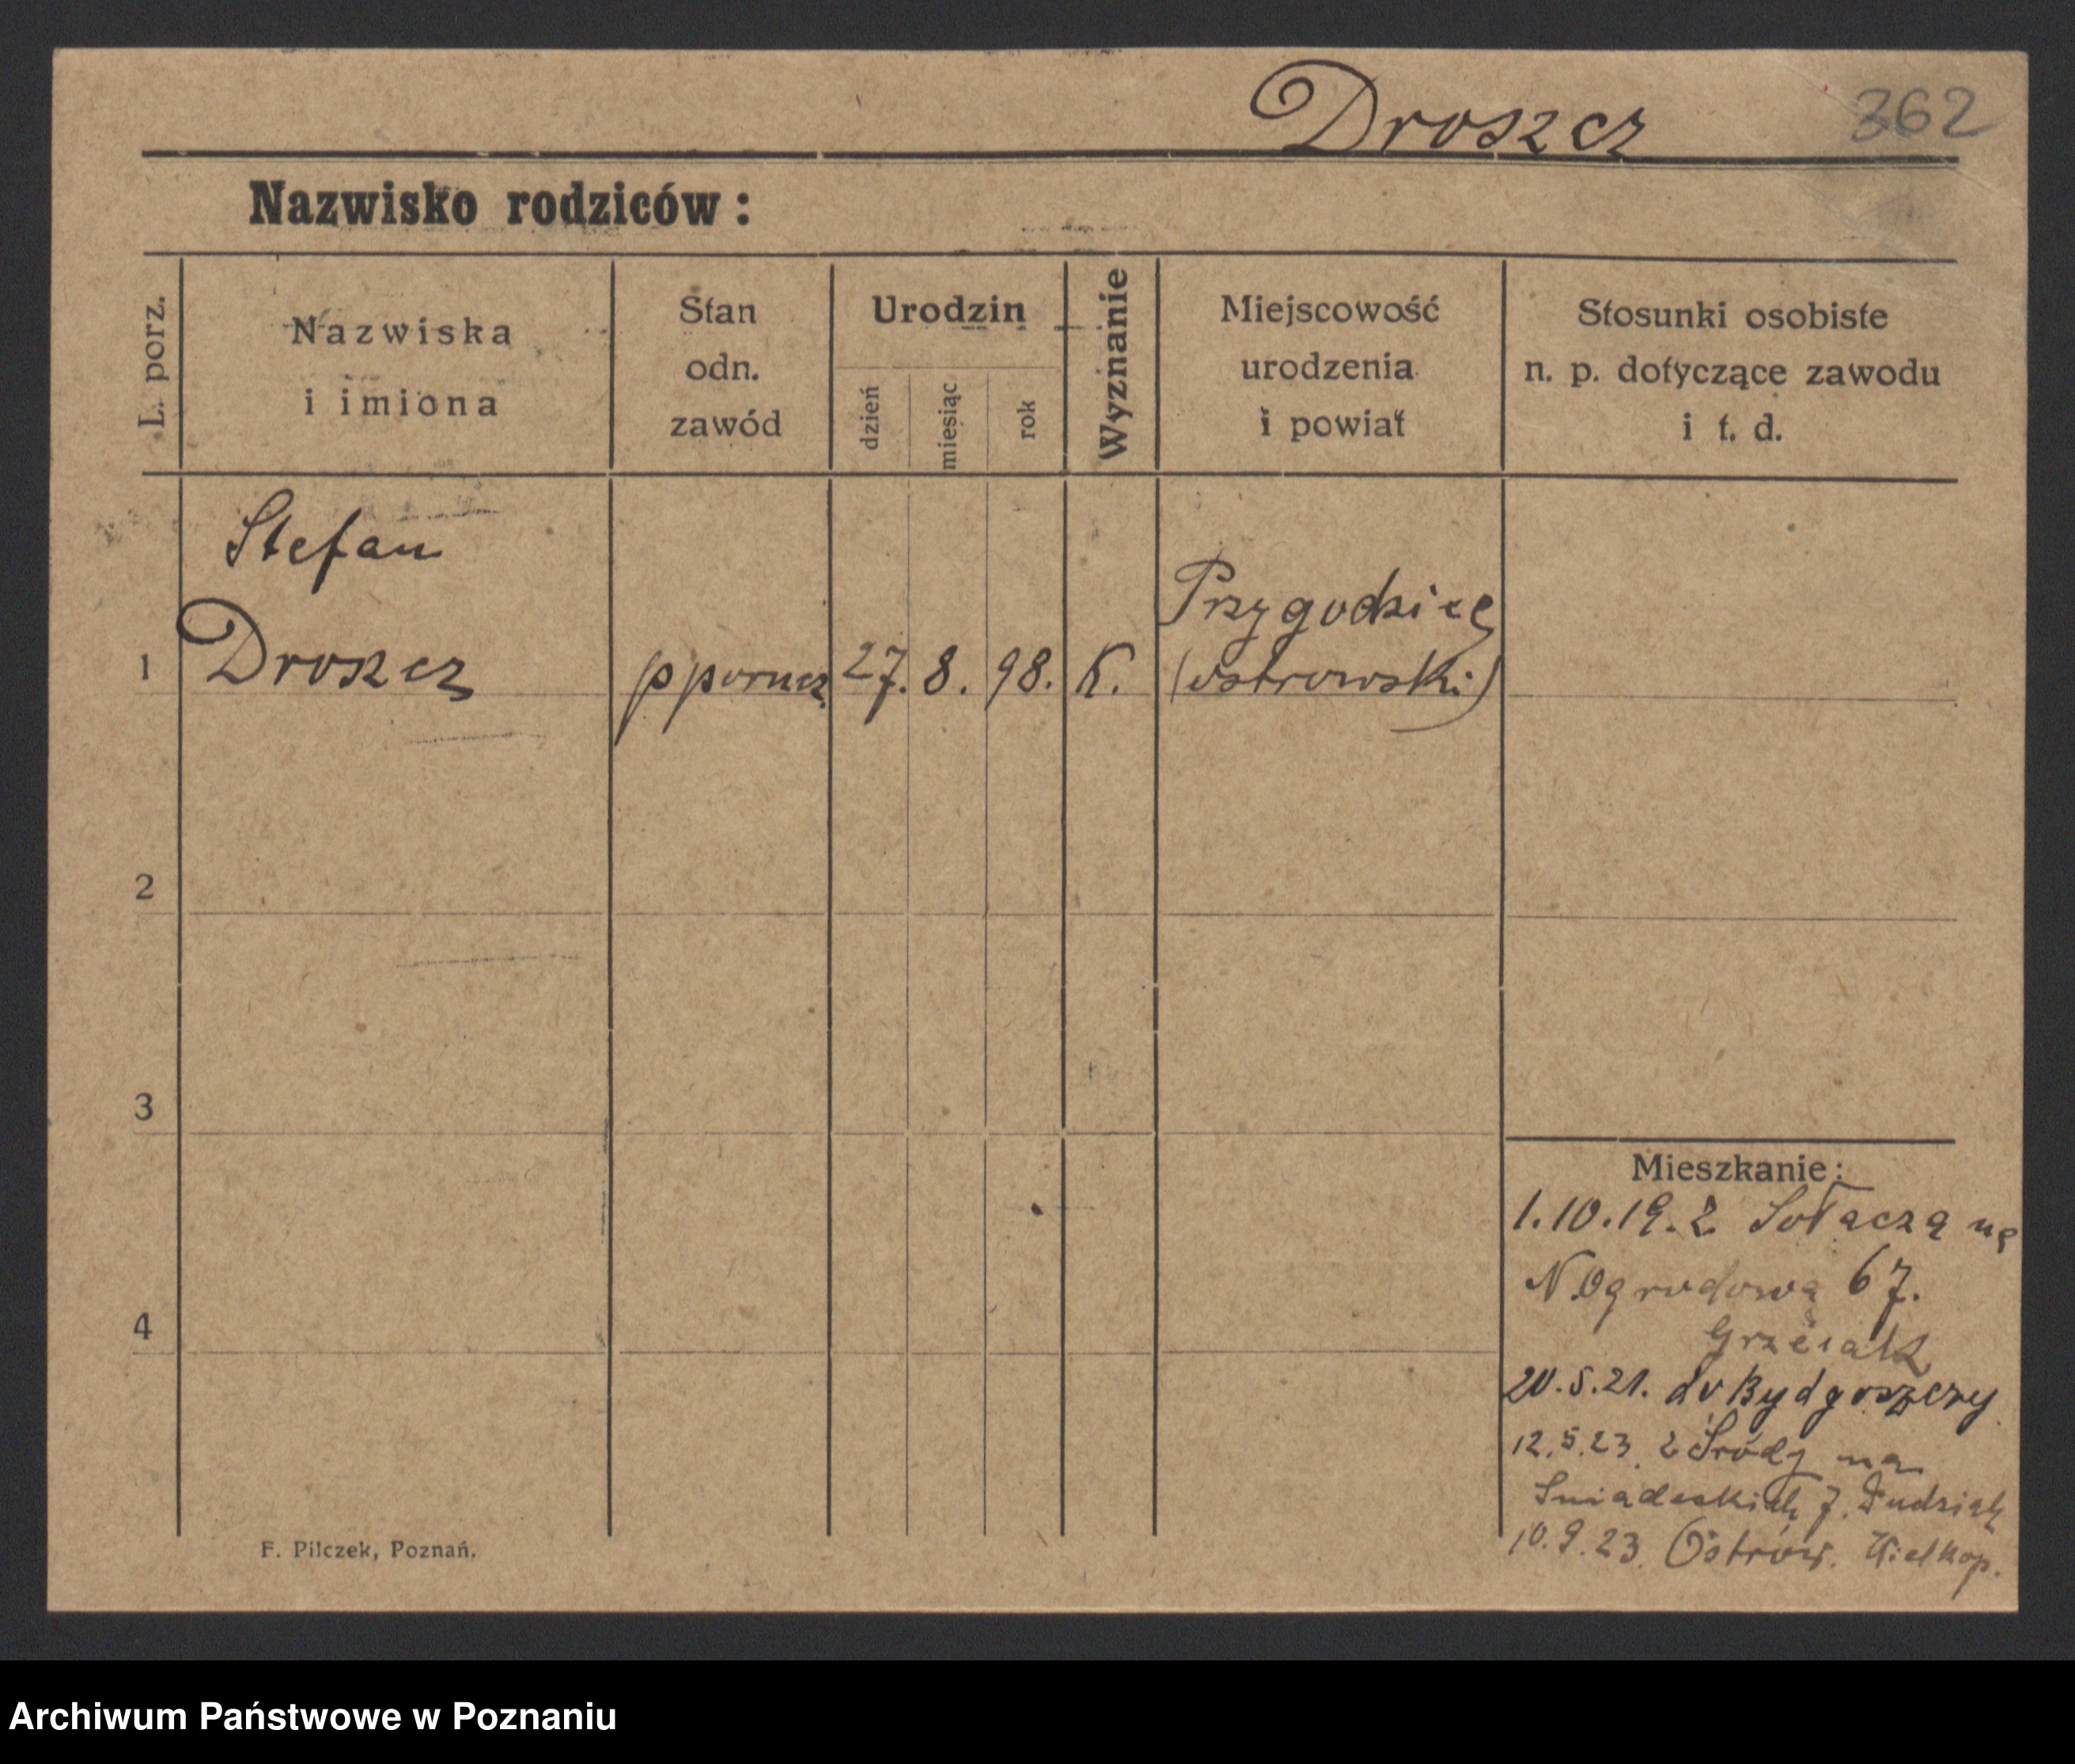 Droszcz 362
Nazwisko rodziców:
L. porz.
Nazwiska
i imiona
Stan
odn.
zawód
Urodzin
dzień
miesiąc
rok
Wyznanie
Miejscowość
urodzenia
i powiat
Stosunki osobiste
n. p. dotyczące zawodu
i t. d.
Stefan
1 Droszcz pporucz. 27. 8. 98. K. Przygodzice
(ostrowski)
2
3
4
Mieszkanie:
1.10.19. z Sołacza na
N.Ogrodową 67.
Grześiak
20.5.21. do Bydgoszczy
12.5.23. z Środy na
Śniadeckich 7. Dudziak
10.9.23. Ostrów. Wielkop.
F. Pilczek, Poznań.
Archiwum Państwowe w Poznaniu